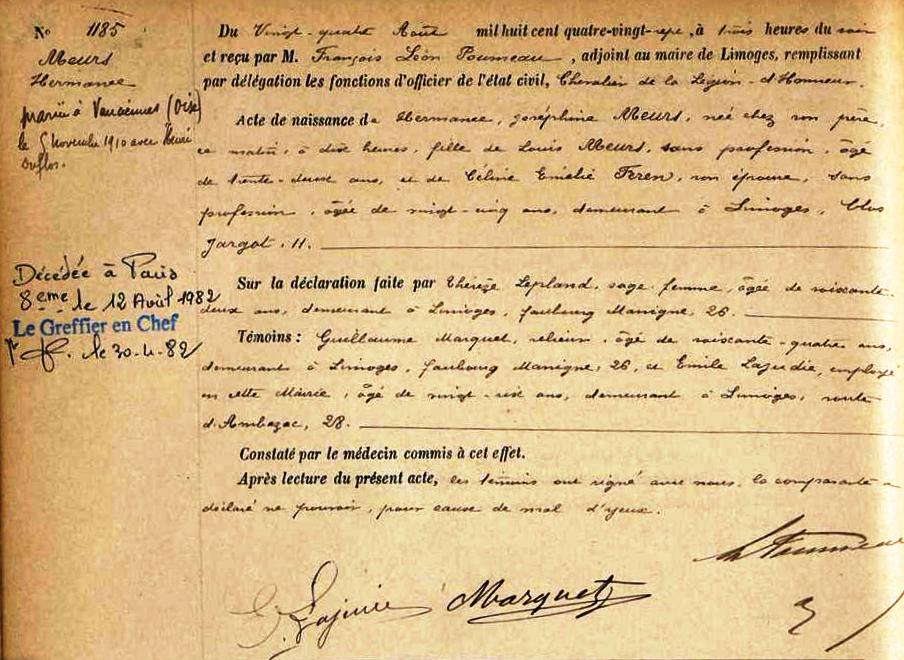 N° 1185
Meurs
Hermance
mariée à Vauciennes (Oise)
le 5 novembre 1910 avec Henri
Duflos.
Décédée à Paris
8eme le 12 Avril 1982
Le Greffier en Chef
le 30-4-82
Du Vingt-quatre Août mil huit cent quatre-vingt-sept, à trois heures du soir
et reçu par M. François Léon Poumeau, adjoint au maire de Limoges, remplissant
par délégation les fonctions d'officier de l'état civil, Chevalier de la Légion-d'Honneur.
Acte de naissance de Hermance, Joséphine Meurs, née chez son père,
ce matin, à dix heures, fille de Louis Meurs, sans profession, âgé
de trente-deux ans, et de Céline Emélie Feren, son épouse, sans
profession, âgée de vingt-cinq ans, demeurant à Limoges, Clos
Jargot, 11.
Sur la déclaration faite par Thérèze Lepland, sage femme, âgée de soixante-
deux ans, demeurant à Limoges, faubourg Manigne, 26.
Témoins: Guillaume Marquet, relieur, âgé de soixante-quatre ans,
demeurant à Limoges, faubourg Manigne, 26, et Emile Lajudie, employé
en cette Mairie, âgé de vingt-six ans, demeurant à Limoges, route
d'Ambazac, 28.
Constaté par le médecin commis à cet effet.
Après lecture du présent acte, les témoins ont signé avec nous, la comparante a
déclaré ne pouvoir, pour cause de mal d'yeux.
E. Lajudie Marquet